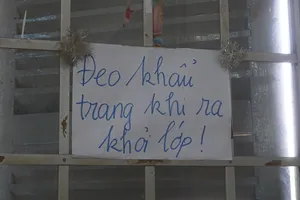 Đeo khẩu
trang khi ra
khỏi lớp!